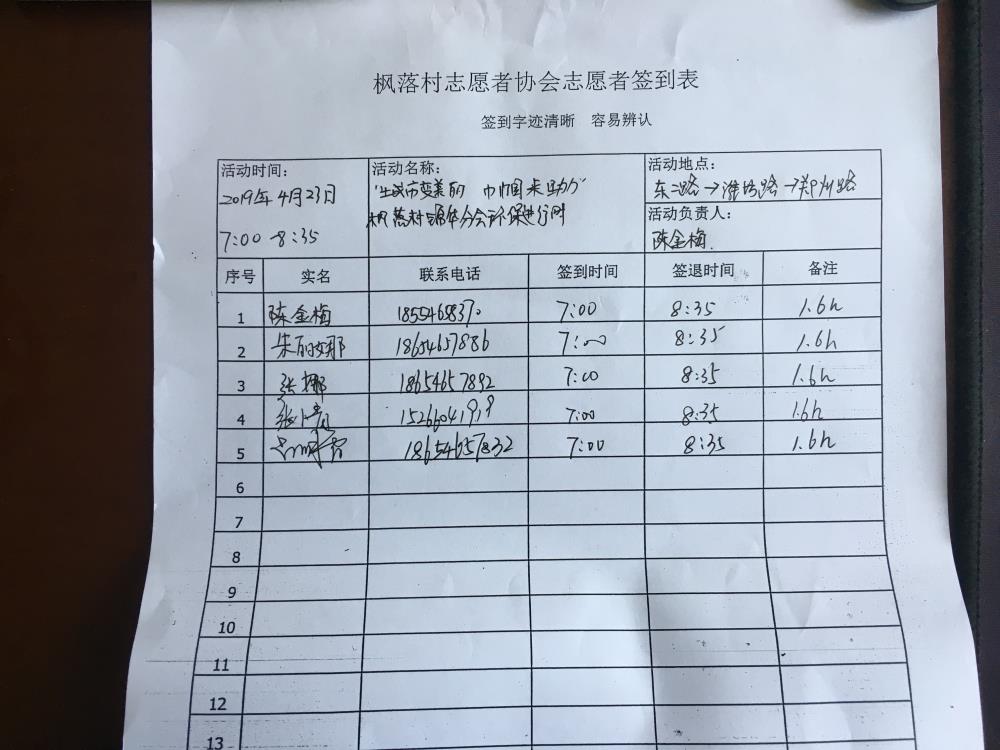 枫落村志愿者协会志愿者签到表
签到字迹清晰 容易辨认
活动时间: 活动名称: 活动地点:
2019年4月23日 "让城市变美丽 巾帼来助力" 东二路→潍坊路→郑州路
枫落村 分会环保进行时 活动负责人:
7:00-8:35 陈金梅.
序号 实名 联系电话 签到时间 签退时间 备注
1 陈金梅 18554658370 7:00 8:35 1.6h
2 朱丽娜 18654657886 7:00 8:35 1.6h
3 张娜 18654657892 7:00 8:35 1.6h
4 张倩 15266041919 7:00 8:35 1.6h
5 18654657832 7:00 8:35 1.6h
6
7
8
9
10
11
12
13